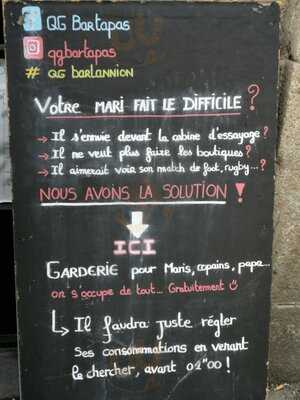 QG Bartapas
qgbartapas
# QG barlannion
Votre MARI FAIT LE DIFFICILE ?
→ Il s'ennuie devant la cabine d'essayage ?
→ Il ne veut plus faire les boutiques ?
→ Il aimerait voir son match de foot, rugby... ?
NOUS AVONS LA SOLUTION !
ICI
GARDERIE pour Maris, copains, papa...
on s'occupe de tout... Gratuitement ☺
↳ Il faudra juste régler
Ses consommations en venant
le chercher, avant 02"00 !